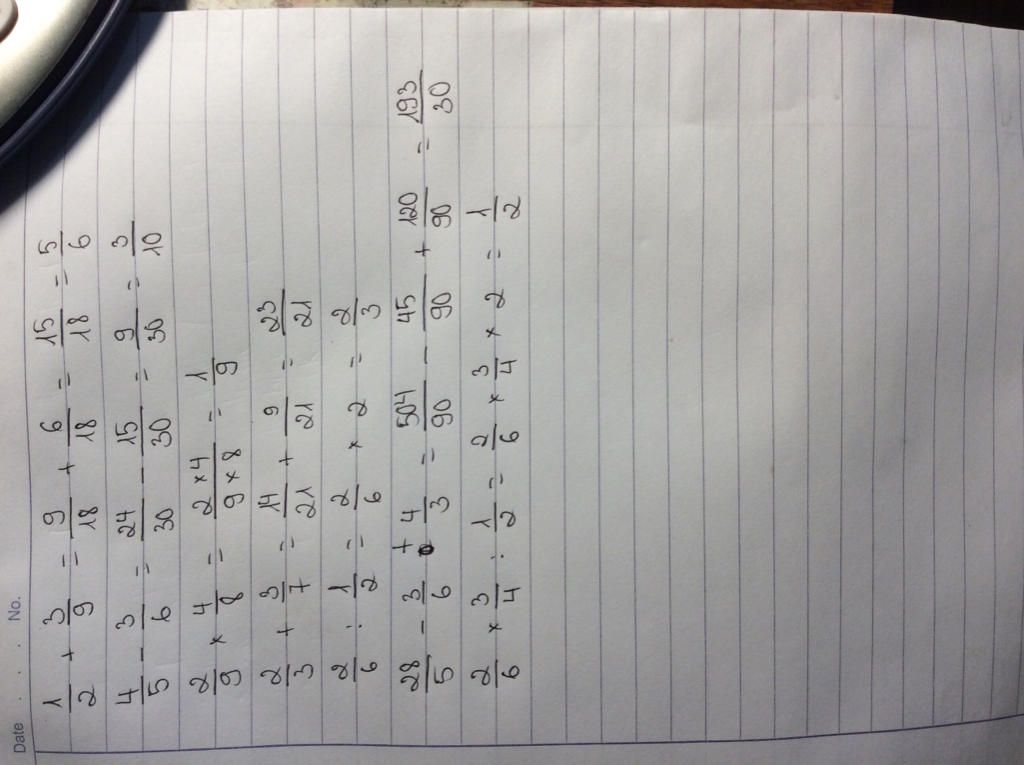 Date . . . No.
1/2 + 3/9 = 9/18 + 6/18 = 15/18 = 5/6
4/5 - 3/6 = 24/30 - 15/30 = 9/30 = 3/10
2/9 × 4/8 = 2 × 4/9 × 8 = 1/9
2/3 + 3/7 = 14/21 + 9/21 = 23/21
2/6 : 1/2 = 2/6 × 2 = 2/3
28/5 - 3/6 + 4/3 = 504/90 - 45/90 + 120/90 = 193/30
2/6 × 3/4 : 1/2 = 2/6 × 3/4 × 2 = 1/2